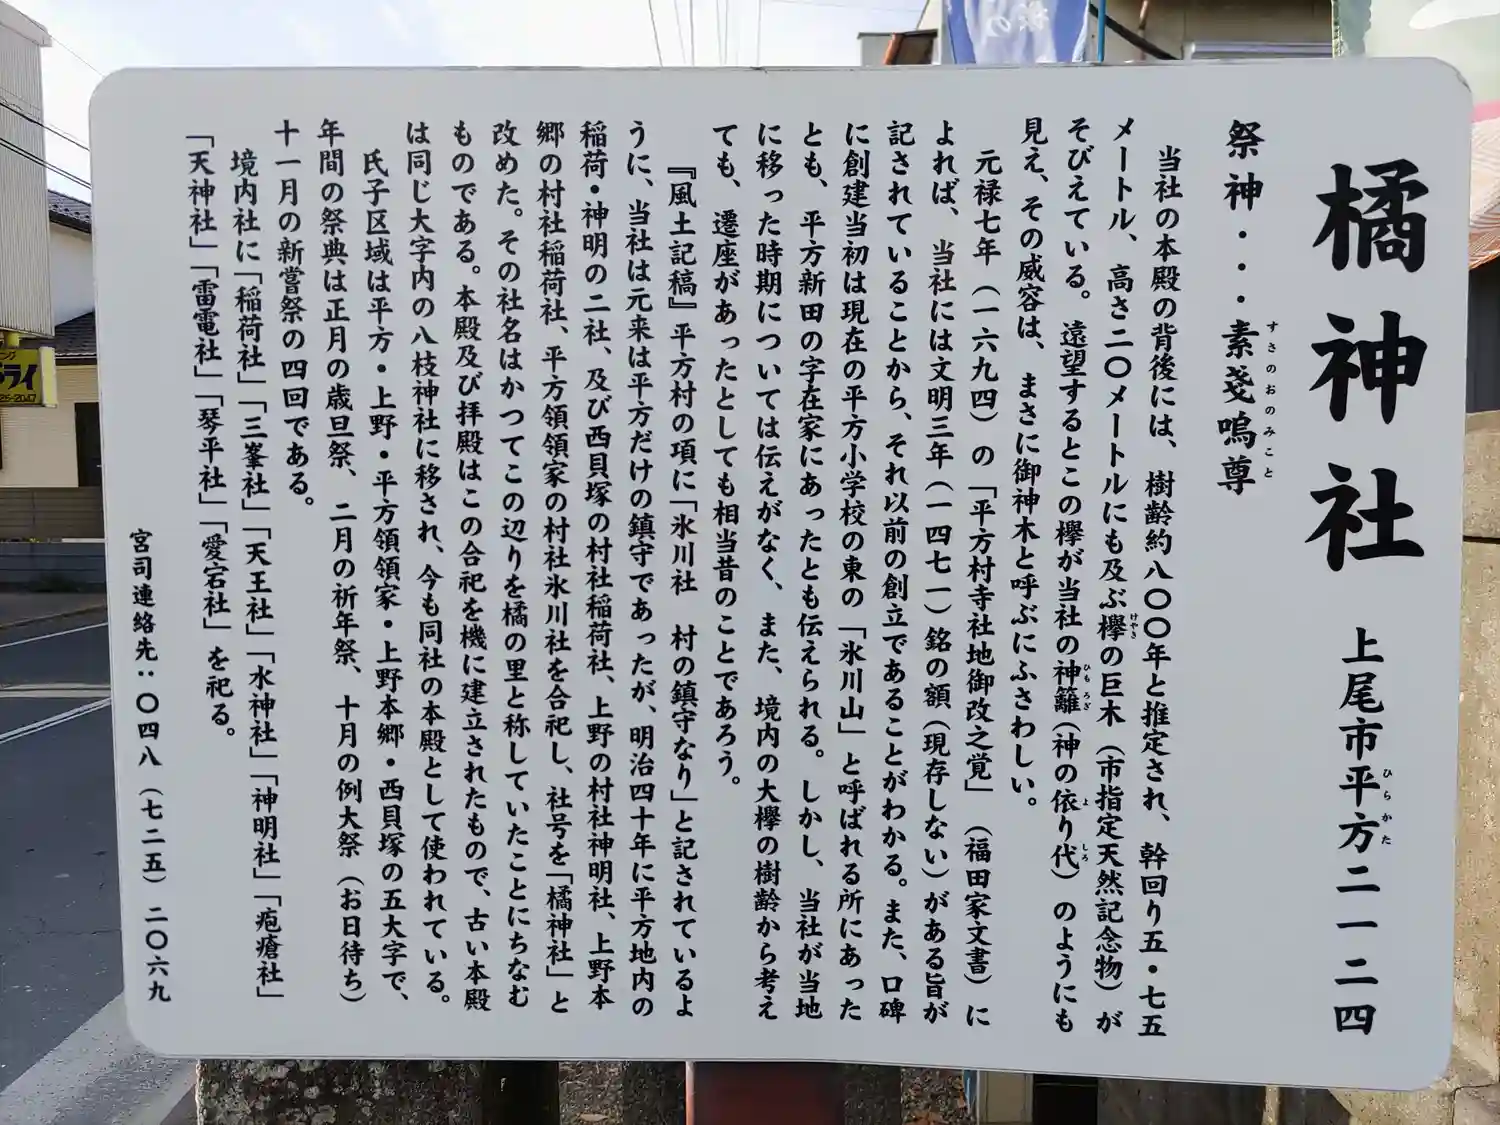 橘神社 上尾市平方二一二四
ひらかた
祭神・・・素戔嗚尊
すさのおのみこと
当社の本殿の背後には、樹齢約八〇〇年と推定され、幹回り五・七五
メートル、高さ二〇メートルにも及ぶ欅の巨木（市指定天然記念物）が
けやき
そびえている。遠望するとこの欅が当社の神籬（神の依り代）のようにも
ひもろぎ
よ しろ
見え、その威容は、まさに御神木と呼ぶにふさわしい。
元禄七年（一六九四）の「平方村寺社地御改之覚」（福田家文書）に
よれば、当社には文明三年（一四七一）銘の額（現存しない）がある旨が
記されていることから、それ以前の創立であることがわかる。また、口碑
に創建当初は現在の平方小学校の東の「氷川山」と呼ばれる所にあった
とも、平方新田の字在家にあったとも伝えられる。しかし、当社が当地
に移った時期については伝えがなく、また、境内の大欅の樹齢から考え
ても、遷座があったとしても相当昔のことであろう。
『風土記稿』平方村の項に「氷川社 村の鎮守なり」と記されているよ
うに、当社は元来は平方だけの鎮守であったが、明治四十年に平方地内の
稲荷・神明の二社、及び西貝塚の村社稲荷社、上野の村社神明社、上野本
郷の村社稲荷社、平方領領家の村社氷川社を合祀し、社号を「橘神社」と
改めた。その社名はかつてこの辺りを橘の里と称していたことにちなむ
ものである。本殿及び拝殿はこの合祀を機に建立されたもので、古い本殿
は同じ大字内の八枝神社に移され、今も同社の本殿として使われている。
氏子区域は平方・上野・平方領領家・上野本郷・西貝塚の五大字で、
年間の祭典は正月の歳旦祭、二月の祈年祭、十月の例大祭（お日待ち）
十一月の新嘗祭の四回である。
境内社に「稲荷社」「三峯社」「天王社」「水神社」「神明社」「疱瘡社」
「天神社」「雷電社」「琴平社」「愛宕社」を祀る。
宮司連絡先：〇四八（七二五）二〇六九